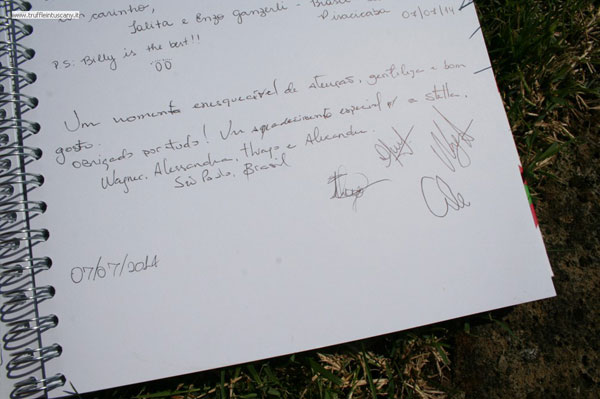 www.truffleintuscany.it
carinho,
Talita e Enzo Ganzerli - Brasil
Piracicaba 07/07/14
P.S: Billy is the best!!
Um momento enesquecível de atenção, gentileza e bom
gosto.
Obrigado por tudo! Um agradecimento especial p/ a stella.
Wagner, Alessandra, Thiago e Alexandre.
São Paulo, Brasil
07/07/2014